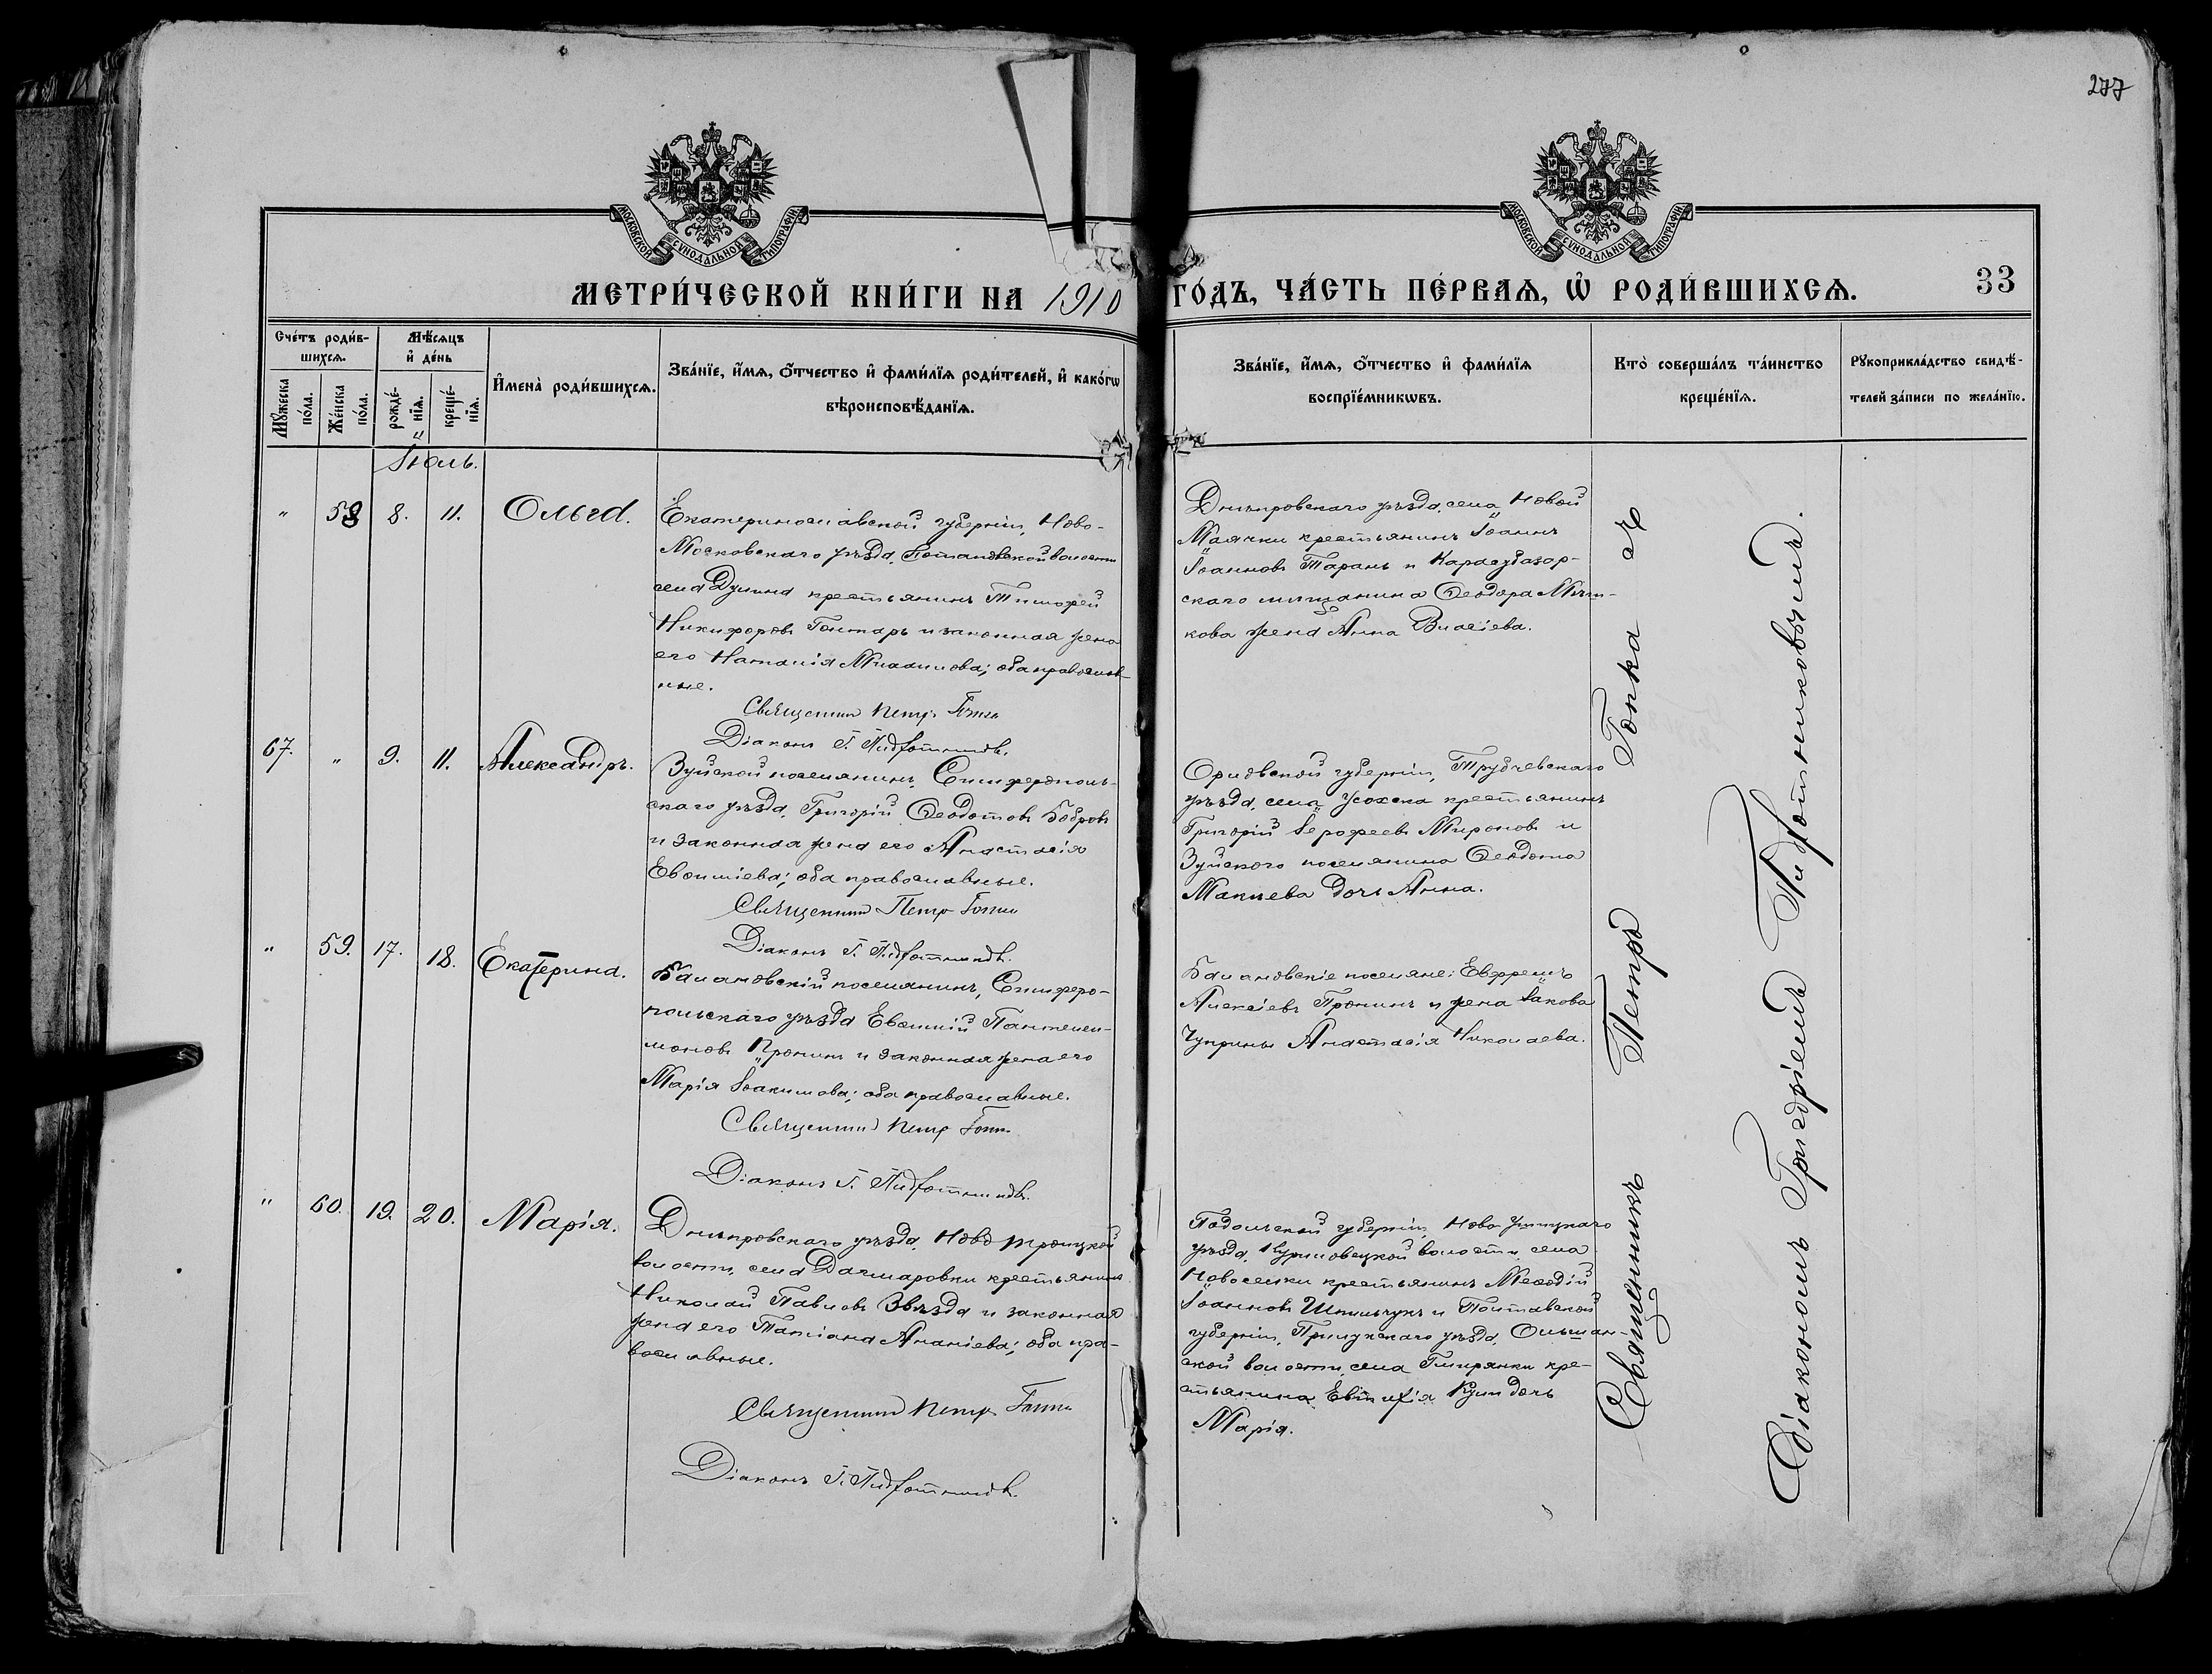 277
МОСКОВСКОЙ СУНОДАЛЬНОЙ ТИПОГРАФІИ
МОСКОВСКОЙ СУНОДАЛЬНОЙ ТИПОГРАФІИ
МЕТРИ́ЧЕСКОЙ КНИ́ГИ НА 1910 ГО́ДЪ, ЧА́СТЬ ПЕ́РВАѦ, Ѡ҆ РОДИ́ВШИХСѦ.
33
Сче́тъ роди́в-
шихсѧ.
Мꙋ́жеска
по́ла.
Же́нска
по́ла.
Мѣ́сѧцъ
и҆ де́нь
рожде́-
нїѧ.
креще́-
нїѧ.
И҆мена̀ роди́вшихсѧ.
Зва́нїе, и҆́мѧ, ѻ҆́тчество и҆ фами́лїѧ роди́телей, и҆ како́гѡ
вѣроисповѣ́данїѧ.
Зва́нїе, и҆́мѧ, ѻ҆́тчество и҆ фами́лїѧ
воспрїе́мникѡвъ.
Кто̀ соверша́лъ та́инство
креще́нїѧ.
Рꙋкоприкла́дство свидѣ́-
телей за́писи по жела́нїю.
Іюль.
" 58 8. 11. Ольга.
Екатеринославской губерніи, Ново-
Московскаго уѣзда, волости
села крестьянинъ Тимофей
Никифоровъ Гонтарь и законная жена
его Наталія; оба православ-
ные.
Священник Петр Гопка
Діаконъ Г. Пидготниковъ.
Днѣпровскаго уѣзда, села Новой
Маячки крестьянинъ Іоаннъ
Іоанновъ Таранъ и Карасубазар-
скаго мѣщанина Ѳеодора
кова жена Анна.
67. " 9. 11. Александръ.
Зуйской поселянинъ, Симферополь-
скаго уѣзда, Григорій Ѳеодотовъ Бобровъ
и законная жена его Анастасія
Евѳиміева; оба православные.
Священник Петр Гопка
Діаконъ Г. Пидготниковъ.
Орловской губерніи, Трубчевскаго
уѣзда, села Усохска крестьянинъ
Григорій Іерофеевъ Мироновъ и
Зуйскаго поселянина Ѳеодота
Макѣева дочь Анна.
" 59. 17. 18. Екатерина.
Балановскій поселянинъ, Симферо-
польскаго уѣзда Евѳимій Пантелеи-
моновъ Пронинъ и законная жена его
Марія Іоакимова; оба православные.
Священник Петр Гопка
Діаконъ Г. Пидготниковъ.
Балановскіе поселяне: Евфремъ
Алексіевъ Пронинъ и жена Іакова
Чуприны Анастасія Николаева.
" 60. 19. 20. Марія.
Днѣпровскаго уѣзда, Ново Троицкой
волости, села Дагмаровки крестьянинъ
Николай Павловъ Звѣзда и законная
жена его Татіана Ананіева; оба пра-
вославные.
Священник Петр Гопка
Діаконъ Г. Пидготниковъ.
Подольской губерніи, Ново Ушицкаго
уѣзда, Куриловецкой волости, села
Новоселки крестьянинъ Меѳодій
Іоанновъ Шпильчукъ и Полтавской
губерніи, Прилукскаго уѣзда, Ольшан-
ской волости, села Гмирянки кре-
стьянина Евтихія дочь
Марія.
Священникъ Петръ Гопка съ
Діакономъ Григоріемъ Пидготниковымъ.